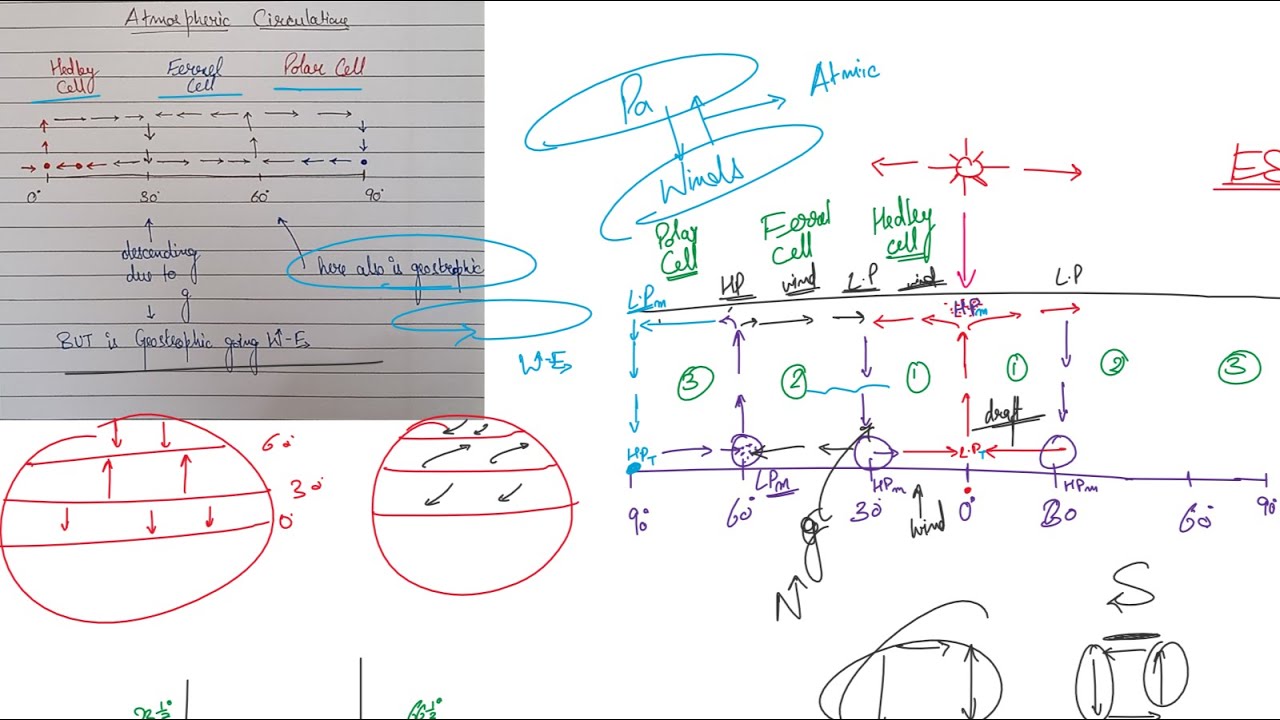 Atmospheric Circulations
Hedley Cell
Ferrel Cell
Polar Cell
0° 30° 60° 90°
descending
due to
g
here also is geostrophic
BUT is Geostrophic going W-E
W-E
60°
30°
0°
Pa
Winds
ES
Polar Cell
Ferral Cell
Hedley cell
L.Pm HP wind L.P wind L.P
HPm
3 2 1 1 2 3
draft
HPT L.PT
LPm HPm HPm
90° 60° 30° 0° 30 60° 90°
wind
g
N
S
66½°